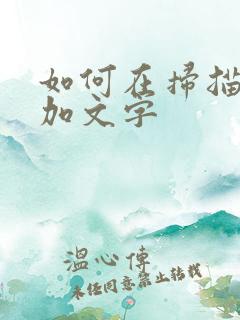 如何在掃描
加文字
溫心傳
未经同意禁止转载